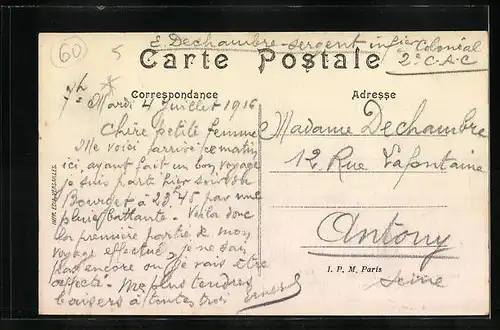 60
5
E. Dechambre - sergent inf ier Colonial
2° C.A.C
Carte Postale
Correspondance
Adresse
Mardi 4 Juillet 1916
Chère petite femme
Me voici arrivé ce matin
ici, ayant fait un bon voyage
je suis parti hier soir du
Bourget à 23h45 par une
pluie battante. Voilà donc
la première partie de mon
voyage effectué, je ne sais
pas encore où je vais être
affecté. Mes plus tendres
baisers à toutes trois
Madame Dechambre
12 Rue Lafontaine
Antony
Seine
I. P. M. Paris